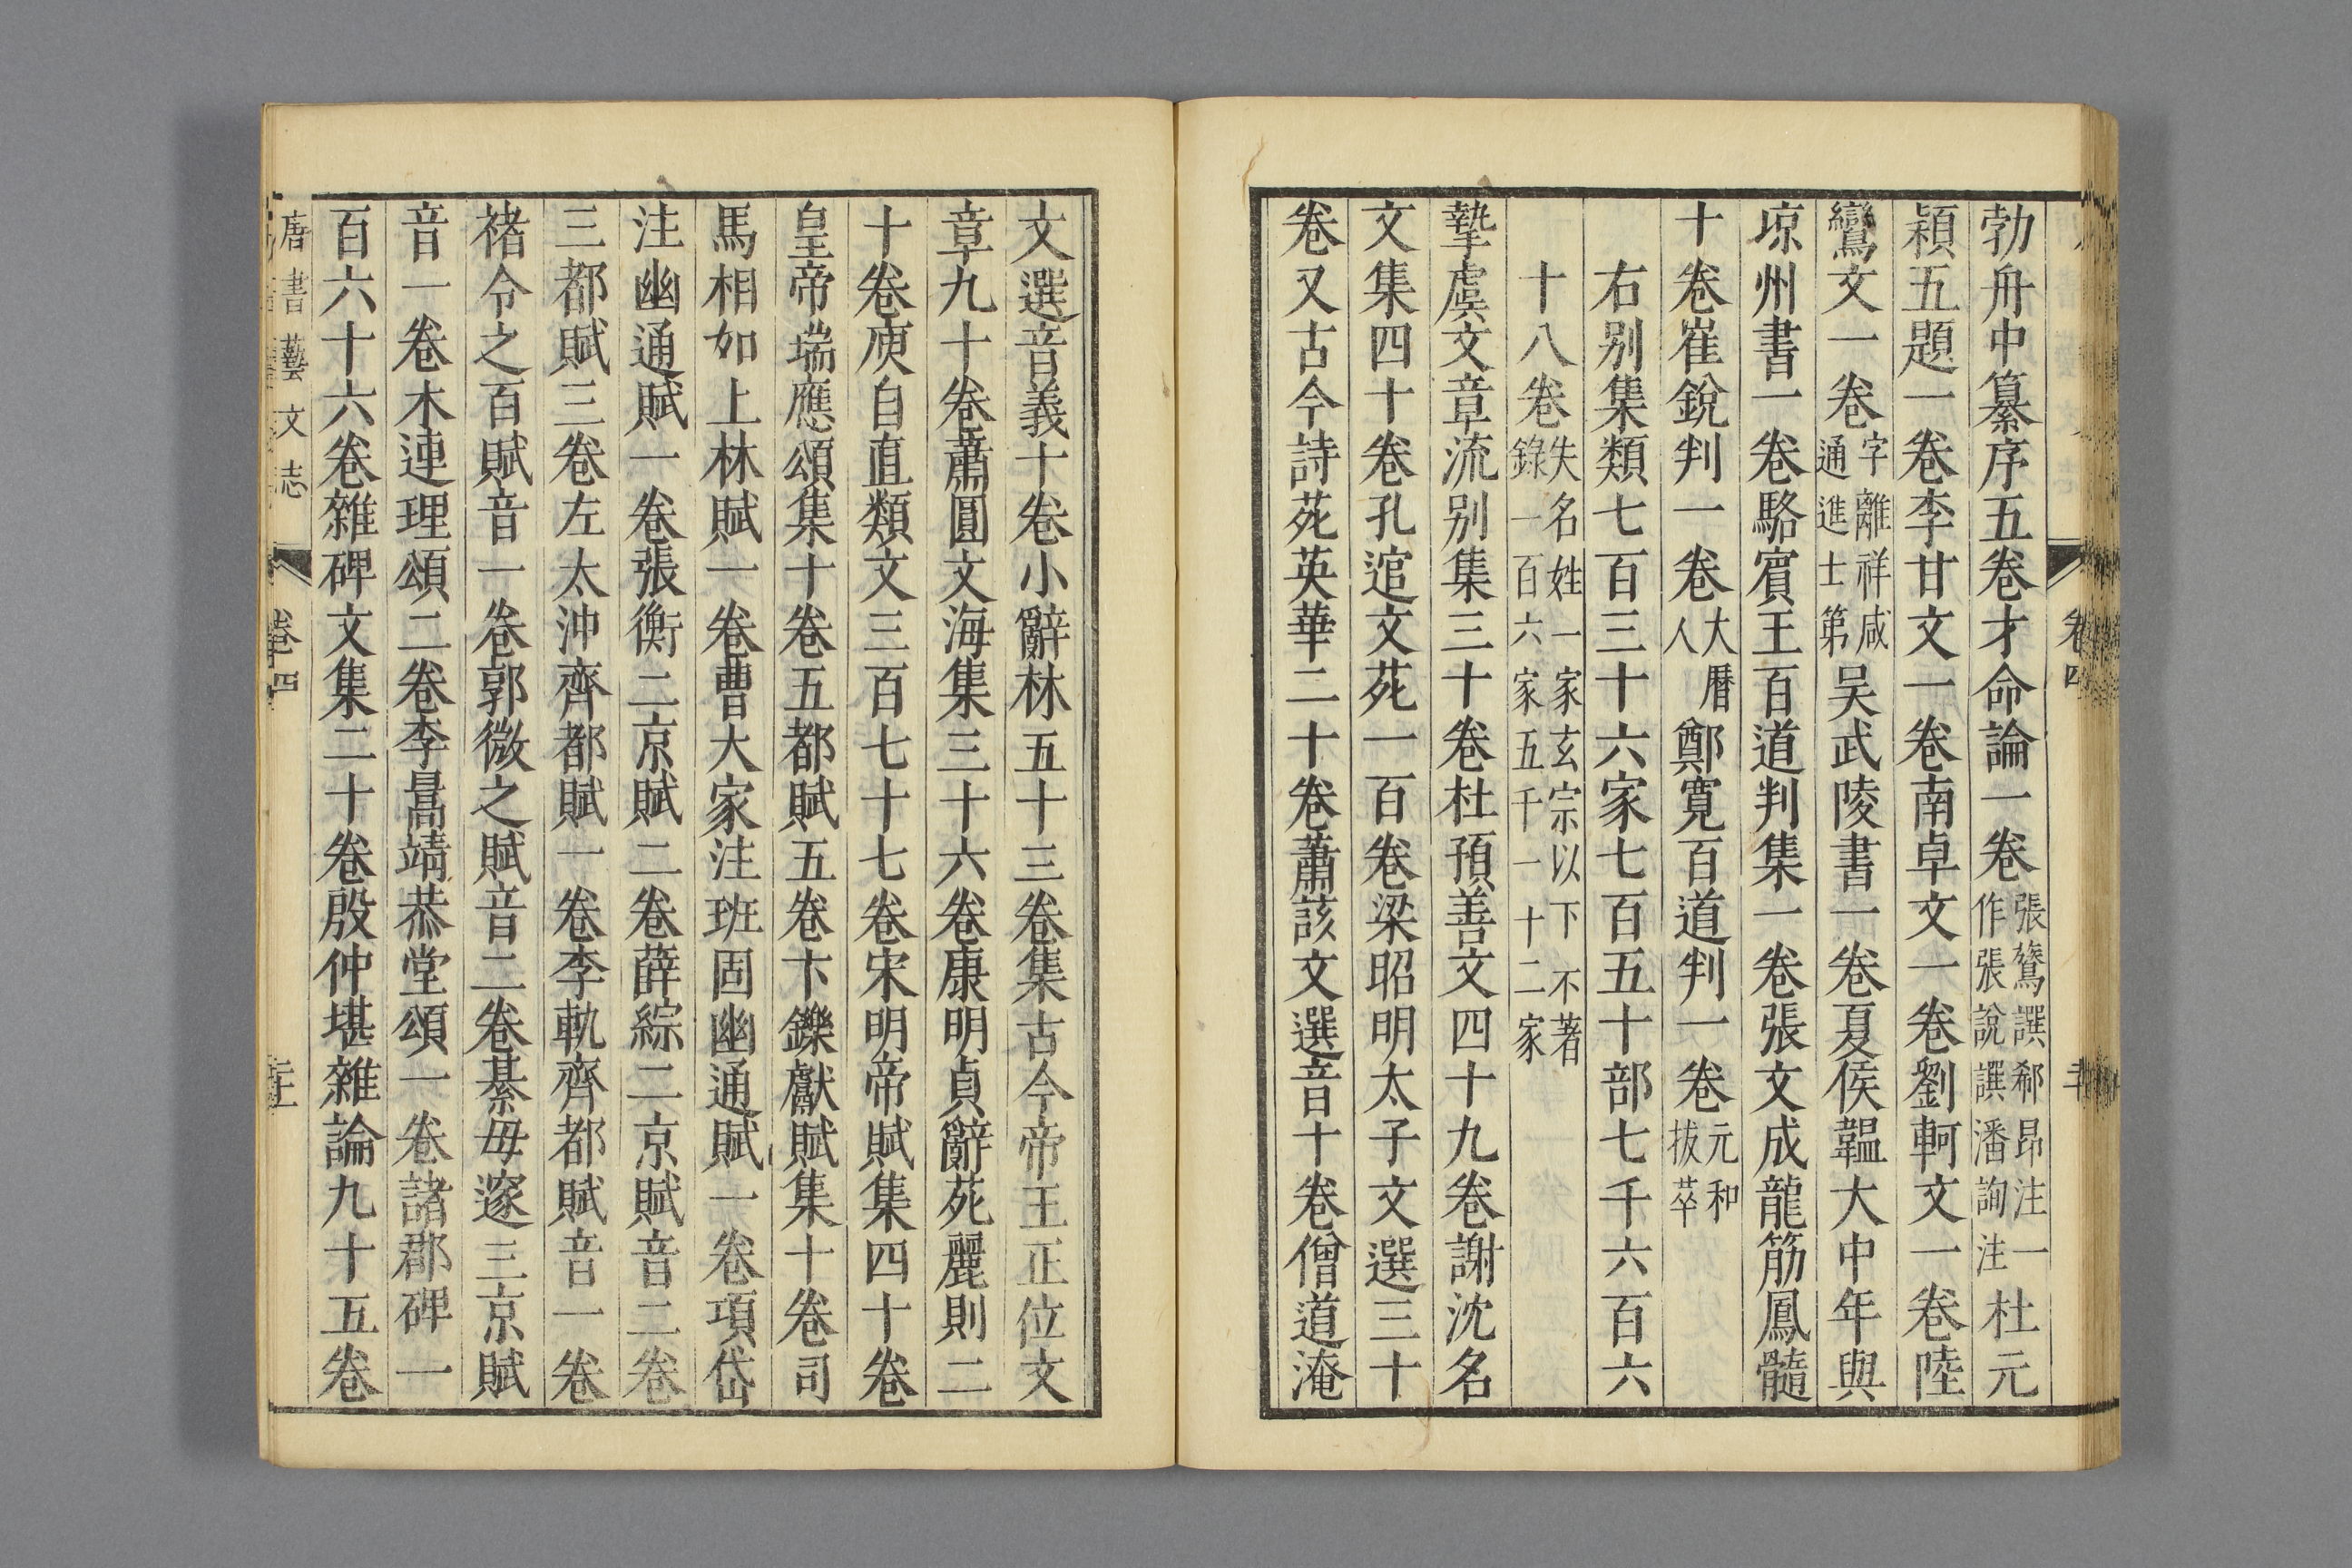 勃舟中纂序五卷才命論一卷張鷟譔郗昂注一作張說譔潘詢注杜元
穎五題一卷李甘文一卷南卓文一卷劉軻文一卷陸
鸞文一卷字離祥咸通進士第吴武陵書一卷夏侯韞大中年與
凉州書一卷駱賓王百道判集一卷張文成龍筋鳳髓
十卷崔銳判一卷大曆人鄭寬百道判一卷元和拔萃
右别集類七百三十六家七百五十部七千六百六
十八卷失名姓一家玄宗以下不著錄一百六家五千一十二家
摯虞文章流别集三十卷杜預善文四十九卷謝沈名
文集四十卷孔逭文苑一百卷梁昭明太子文選三十
卷又古今詩苑英華二十卷蕭該文選音十卷僧道淹
文選音義十卷小辭林五十三卷集古今帝王正位文
章九十卷蕭圓文海集三十六卷康明貞辭苑麗則二
十卷庾自直類文三百七十七卷宋明帝賦集四十卷
皇帝瑞應頌集十卷五都賦五卷卞鑠獻賦集十卷司
馬相如上林賦一卷曹大家注班固幽通賦一卷項岱
注幽通賦一卷張衡二京賦二卷薛綜二京賦音二卷
三都賦三卷左太沖齊都賦一卷李軌齊都賦音一卷
褚令之百賦音一卷郭微之賦音二卷綦毋邃三京賦
音一卷木連理頌二卷李暠靖恭堂頌一卷諸郡碑一
百六十六卷雜碑文集二十卷殷仲堪雜論九十五卷
唐書藝文志 卷四